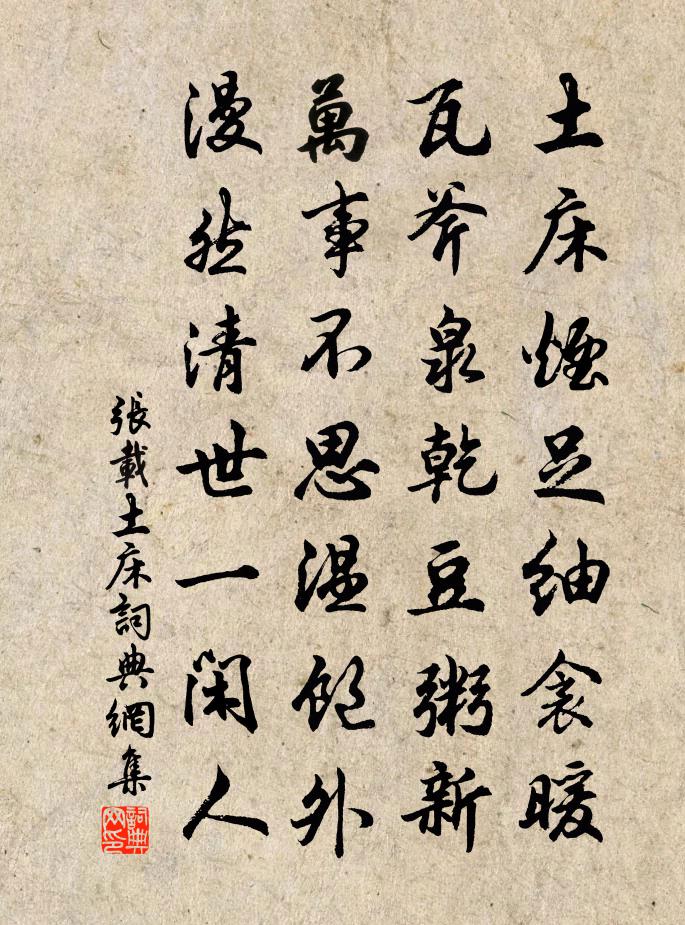 土床煙足紬衾暖
瓦釜泉乾豆粥新
萬事不思温飽外
漫然清世一閑人
張載土床詞典網集
詞典网印